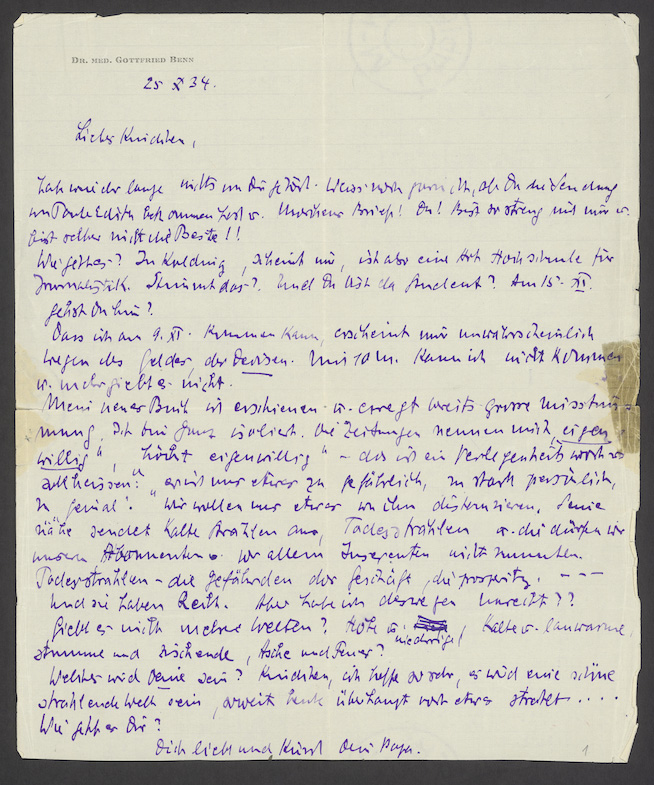 DR. MED. GOTTFRIED BENN
25 X 34.
Liebes Knuditen,
habe wieder lange nichts von Dir gehört. Weiss noch garnicht, ob Du die Sendung
von Tante Edith bekommen hast u. Briefe! Du! Bist so streng mit mir u.
bist selber nicht die Beste!!
Wie geht es? In Kolding, scheint mir, ist also eine Art Hochschule für
Journalistik. Stimmt das? Und Du bist da Student? Am 15. XI.
gehst Du hin?
Dass ich am 9. XI. kommen kann, erscheint mir unwahrscheinlich
wegen des Geldes, der Devisen. Mit 10 M. kann ich nicht kommen
u. mehr giebt es nicht.
Mein neues Buch ist erschienen u. erregt bereits grosse Misstim-
mung, ich bin ganz isoliert. Die Zeitungen nennen mich „eigen-
willig", „höchst eigenwillig" – das ist ein Verlegenheitswort u.
soll heissen: er ist nur etwas zu gefährlich, zu stark persönlich,
zu „genial". Wir wollen uns etwas von ihm distanzieren, seine
Nähe sendet kalte Strahlen aus, Todesstrahlen u. die dürfen wir
unsern Abonnenten u. vor allem Inserenten nicht zumuten.
Todesstrahlen – die gefährden die Geschäfte, die prosperity. – – –
Und sie haben Recht. Aber habe ich deswegen Unrecht??
Giebt es nicht mehrere Welten? Hohe u. niedrige, kalte u. lauwarme,
stumme und zischende, Asche und Feuer?
Welches wird Deine sein? Knuditen, ich hoffe so sehr, es wird eine schöne
strahlende Welt sein, soweit heute überhaupt noch etwas strahlt....
Wie geht es Dir?
Dich liebt und küsst Dein Papa.
1